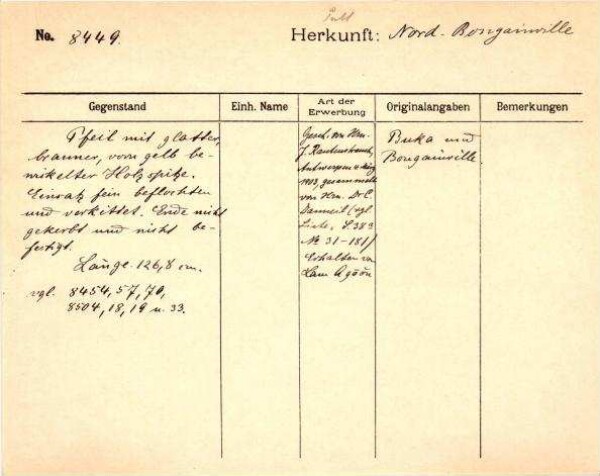 No. 8449.
Herkunft: Nord-Bougainville
Gegenstand
Einh. Name
Art der Erwerbung
Originalangaben
Bemerkungen
Pfeil mit glatter,
brauner, vorn gelb be-
wickelter Holzspitze.
Einsatz fein beflochten
und verkittet. Ende nicht
gekerbt und nicht be-
festigt.
Länge 126,8 cm.
vgl. 8454, 57, 70,
8504, 18, 19 u. 33.
Gesch. von Hrn.
J. Rautenstrauch,
Antwerpen
1903, gesammelt
von Hrn. Dr. E.
Danneil (vgl.
Liste, S. 383
№ 31-181)
Erhalten
Buka und
Bougainville.